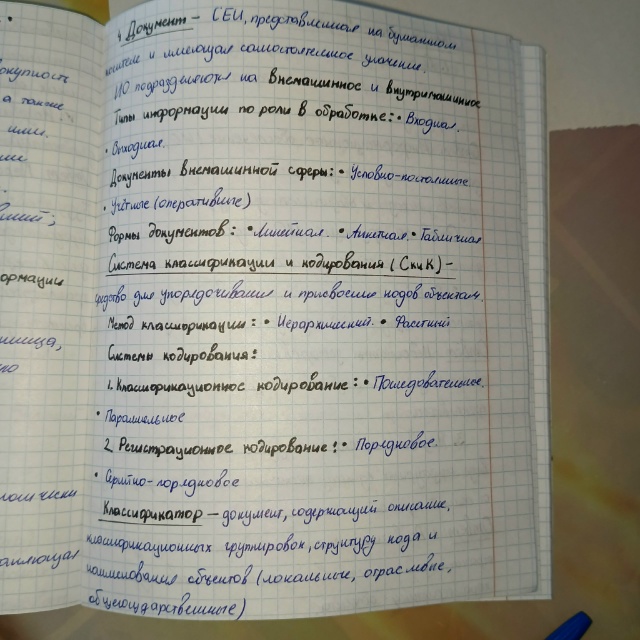 окупность
а также
ими.
ормации
4 Документ – СЕИ, представленная на бумажном
носителе и имеющая самостоятельное значение.
ИО подразделяются на внемашинное и внутримашинное
Типы информации по роли в обработке: • Входная.
• Выходная.
Документы внемашинной сферы: • Условно-постоянные
• Учётные (оперативные)
Формы документов: • Линейная. • Анкетная. • Табличная
Система классификации и кодирования (СКиК) –
средство для упорядочивания и присвоения кодов объектам.
Метод классификации: • Иерархический. • Фасетный
Системы кодирования:
1. Классификационное кодирование: • Последовательное.
• Параллельное
2. Регистрационное кодирование: • Порядновое.
• Серийно-порядновое
Классификатор – документ, содержащий описание,
классификационных группировок, структуру кода и
наименования объектов (локальные, отраслевые,
общегосударственные)